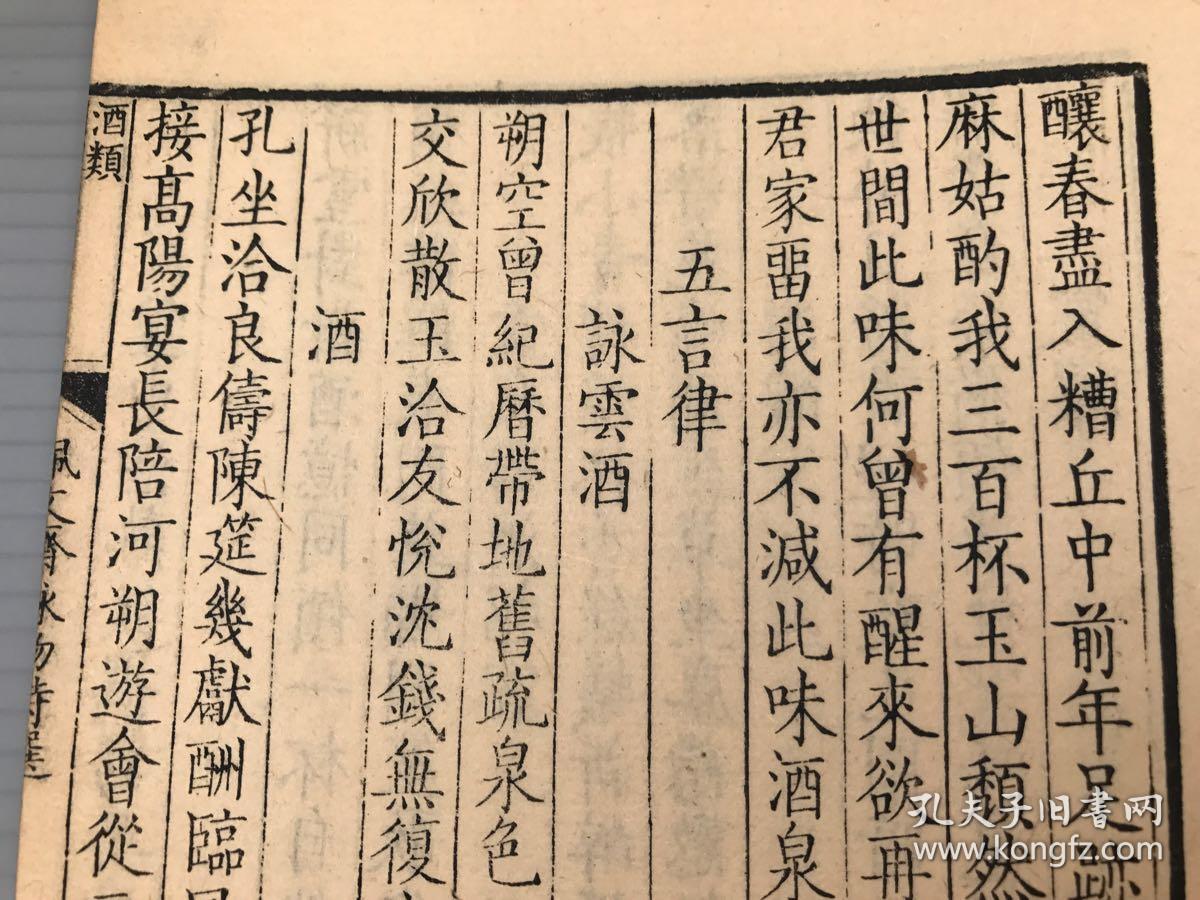 釀春盡入糟丘中前年足跡
麻姑酌我三百杯玉山頹然
世間此味何曾有醒來欲再
君家畱我亦不減此味酒泉
五言律
詠雲酒
朔空曾紀曆帶地舊疏泉色
交欣散玉洽友悅沈錢無復
酒
孔坐洽良儔陳筵幾獻酬臨
接高陽宴長陪河朔遊會從
酒類
佩文齋詠物詩選
孔夫子旧书网
www.kongfz.com